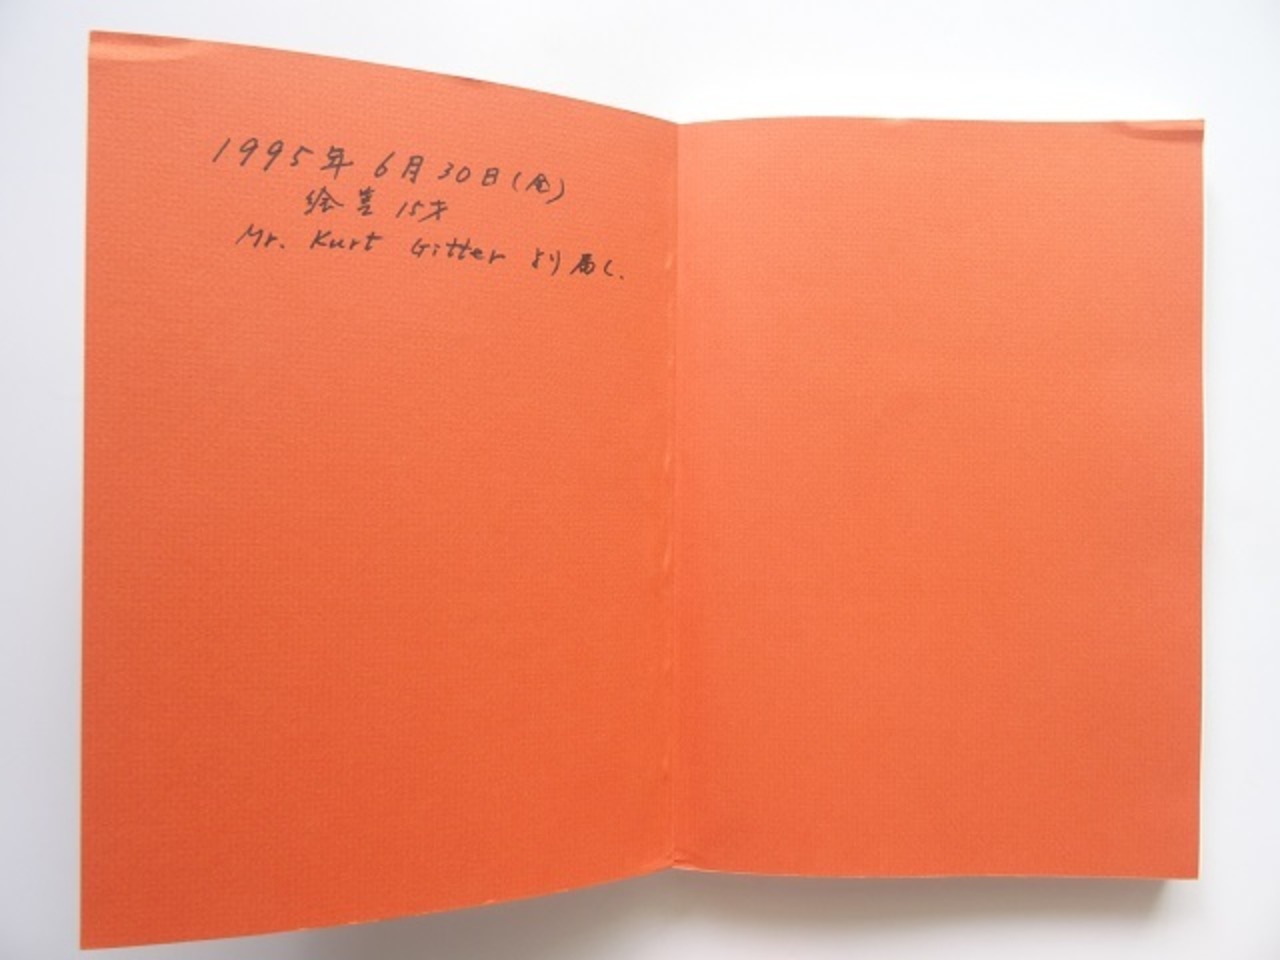 1995年 6月 30日(金)
絵喜 15才
Mr. Kurt Gitter より届く.